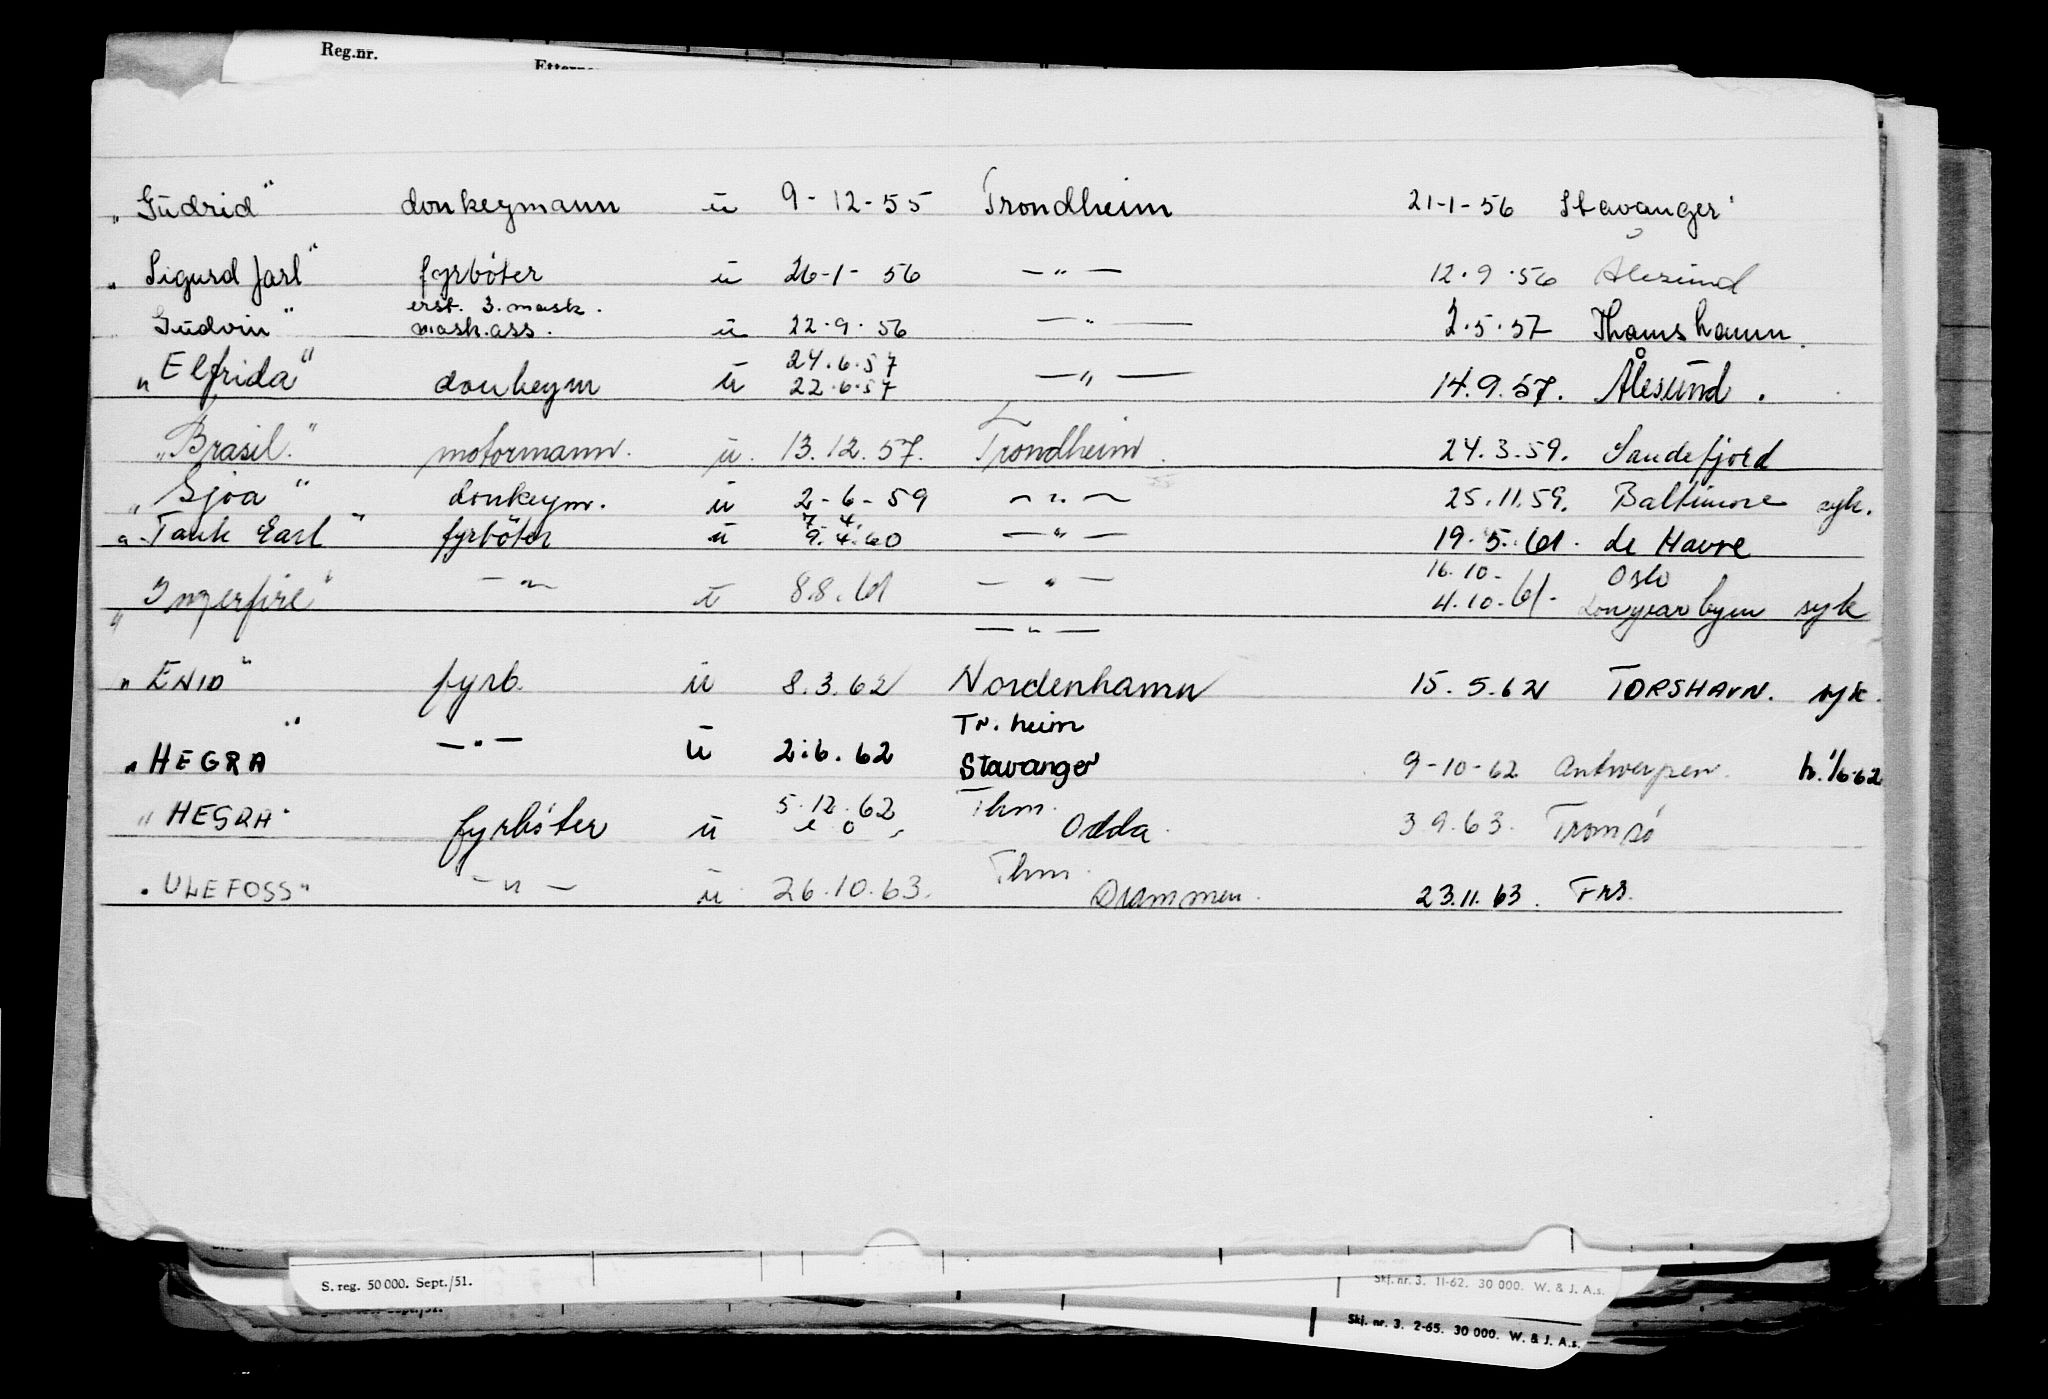 Reg.nr.
"Gudrid" donkeymann u 9-12-55 Trondheim 21-1-56 Stavanger
"Sigurd Jarl" fyrbøter u 26-1-56 — " — 12.9.56 Ålesund
erst. 3. mask.
Gudvin" mask.ass. u 22.9.56 — " — 2.5.57 Thamshamn.
24.6.57
"Elfrida" donkeym u 22.6.57 — " — 14.9.57. Ålesund.
"Brasil." motormann. u. 13.12.57. Trondheim. 24.3.59. Sandefjord
"Sjoa" donkeym. u 2-6-59 — " — 25.11.59. Baltimore syk.
7 4.
"Tank Earl" fyrbøter u 9.4.60 — " — 19.5.61. de Havre
16.10- Oslo
"Ingerfire" — " — u 8.8.61 — " — 4.10-61- Longyearbyen syk
— " —
"ENID" fyrb. u 8.3.62 Nordenhamn 15.5.62 TORSHAVN. syk.
Tr.heim
"HEGRA" — " — u 2.6.62 Stavanger 9-10-62 Antwerpen. h. 1/6-62
5.12.62 Thm.
"HEGRA" fyrbøter u Odda. 3 9.63. Tromsø
Thm.
"ULEFOSS" — " — u 26.10.63. Drammen. 23.11.63. Frs.
S. reg. 50 000. Sept./51.
Skj. nr. 3. 11-62. 30 000. W. & J. A.s.
Skj. nr. 3. 2-65. 30 000. W. & J. A.s.